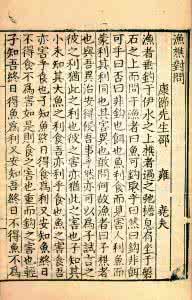 漁樵對問
康節先生邵 雍 堯夫
漁者垂釣于伊水之上樵者過之弛擔息肩坐于磐
石之上而問于漁者曰魚可鈎取乎曰然曰鈎非餌
可乎曰否曰非鈎也餌也魚利食而見害人利魚而
蒙利其利同也其害異也敢問何故漁者曰子樵者
也與吾異治安得侵吾事乎然亦可以為子試言之
彼之利猶此之利也彼之害亦猶此之害也子知其
小未知其大魚之利食吾亦利乎食也魚之害食吾
亦害乎食也子知魚終日得食為利又安知魚終日
不得食不為害如是則食之害也重而鈎之害也輕
子知吾終日得魚為利又安知吾終日得魚不為